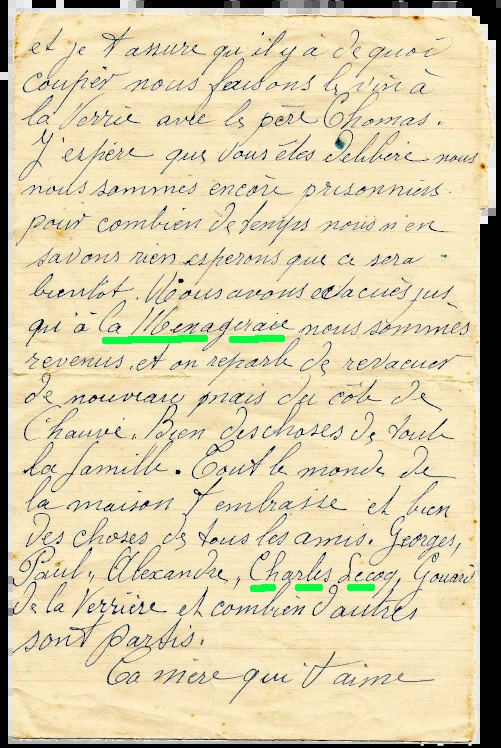 et je t assure qu'il y à de quoi
coupér nous faisons le vin à
la Verrie avec le pére Thomas.
J'espére que vous étes deliberé nous
nous sommes encore prisonniers
pour combien de temps nous n'en
savons rien esperons que ce sera
bientot. Nous avons evacués jus
qu'à la Menageraie nous sommes
revenus. et on reparle de revacuer
de nouveau mais du côté de
Chauvé. Bien des choses de toute
la famille. Tout le monde de
la maison t embrasse et bien
des choses de tous les amis. Georges,
Paul, Alexandre, Charles Lecoq, Gouard
de la Verriere et combien d'autres
sont partis.
Ta mère qui t'aime